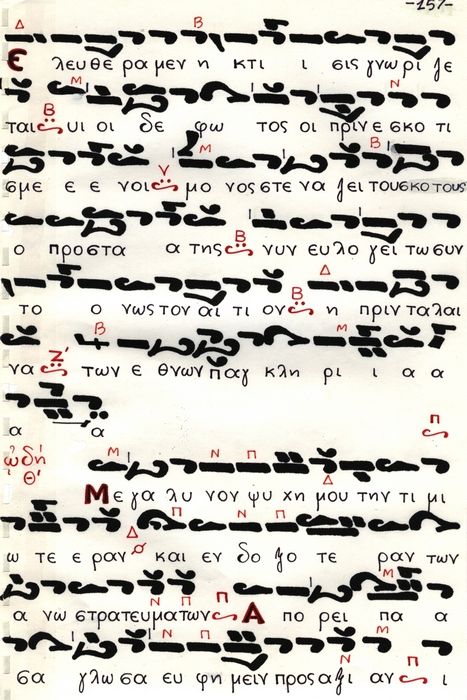 -157-
Δ Β
Ελευθε ρα μεν η κτι ι σις γνω ρι ζε
Μ Ν
ται Β υι οι δε φω τος οι πριν ε σκο τι
Μ Β
σμε ε ε νοι ν μο νος στε να ζει του σκο τους
ο προ στα α της Β νυν ευ λο γει τω συν
Δ
το ο νως τον αι τι ον Β η πριν ταλαι
Β Μ
να Ζ' των ε θνων παγ κλη ρι ι α α
α α
Π
ᾠδή θ' Μ Ν Π
Με γα λυ νον ψυ χη μου Δ την τι μι
Π Ν Π
ω τε ε ραν Δ και εν δο ξο τε ραν των
Μ
α νω στρατευματων Ν Π Π Α πο ρει πα α
Ν Π Μ
σα γλω σα ευ φη μειν προς αξι αν Π ι